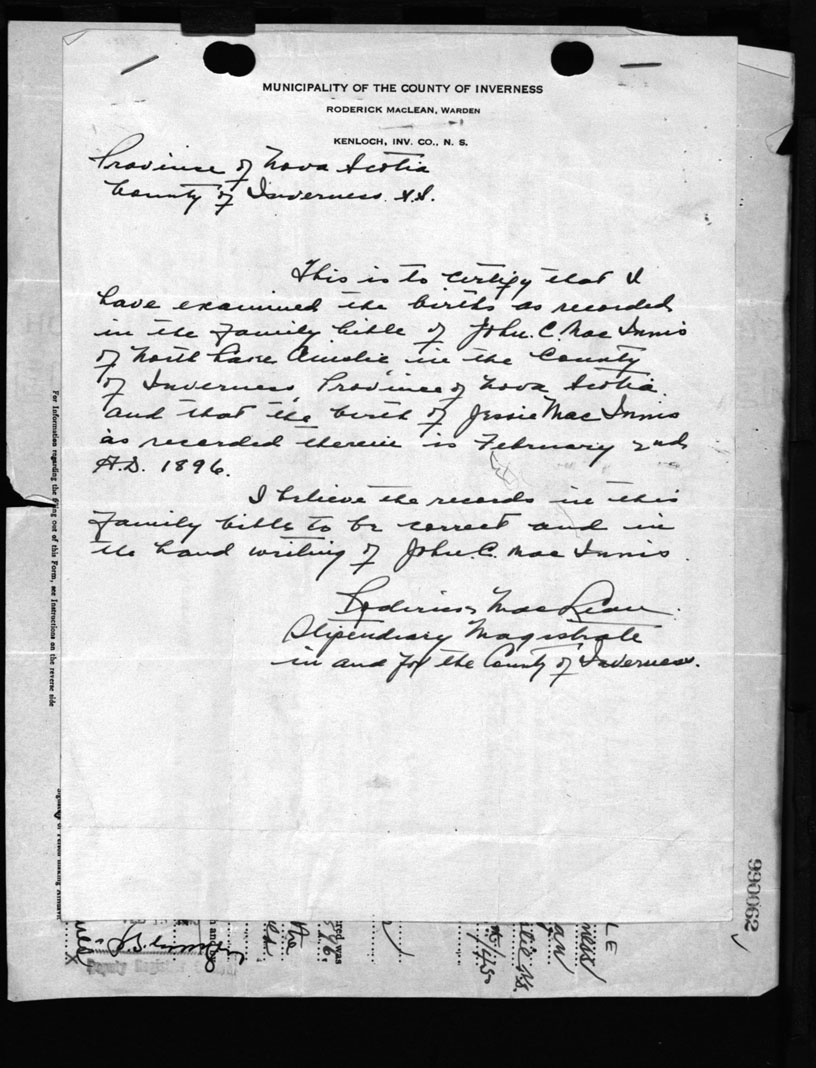 MUNICIPALITY OF THE COUNTY OF INVERNESS
RODERICK MACLEAN, WARDEN
KENLOCH, INV. CO., N. S.
Province of Nova Scotia
County of Inverness. S.S.
This is to certify that I
have examined the births as recorded
in the family bible of John. C. Mac Innis
of North Lake Ainslie in the County
of Inverness, Province of Nova Scotia.
and that the birth of Jessie Mac Innis
as recorded therein is February 2nd
A.D. 1896.
I believe the records in this
family bible to be correct and in
the hand writing of John. C. Mac Innis.
Roderick MacLean.
Stipendiary Magistrate
in and for the County of Inverness.
For Information regarding the filling out of this Form, see Instructions on the reverse side
990062
Deputy Registrar